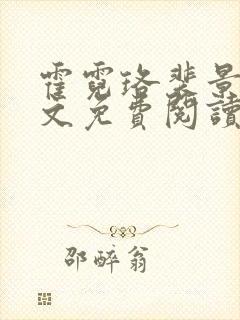 霍霓珞裴景
文免費閱讀
邵醉翁